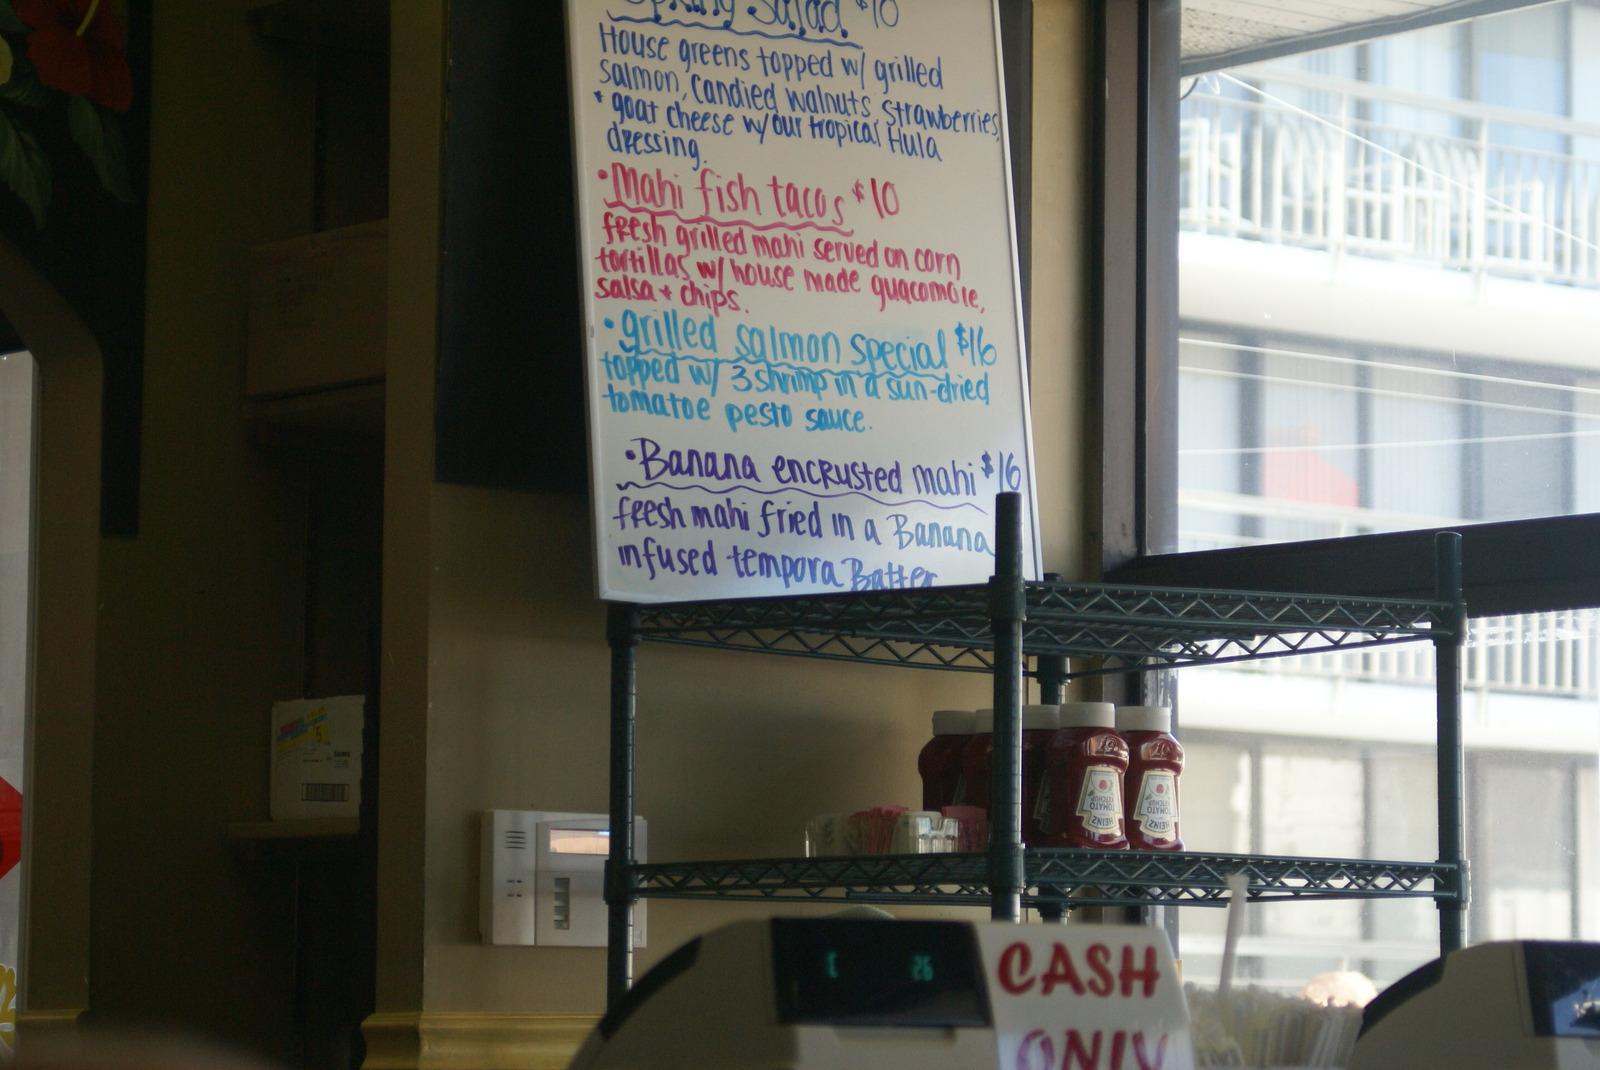 Spring Salad $10
House greens topped w/ grilled
salmon, candied walnuts, strawberries,
+ goat cheese w/our tropical Hula
dressing.
•Mahi fish tacos $10
fresh grilled mahi served on corn
tortillas w/ house made guacomole,
salsa + chips.
•grilled salmon special $16
topped w/ 3 shrimp in a sun-dried
tomatoe pesto sauce.
•Banana encrusted mahi $16
fresh mahi fried in a Banana
infused tempora Batter
HEINZ
TOMATO
KETCHUP
HEINZ
TOMATO
KETCHUP
26
CASH
ONLY